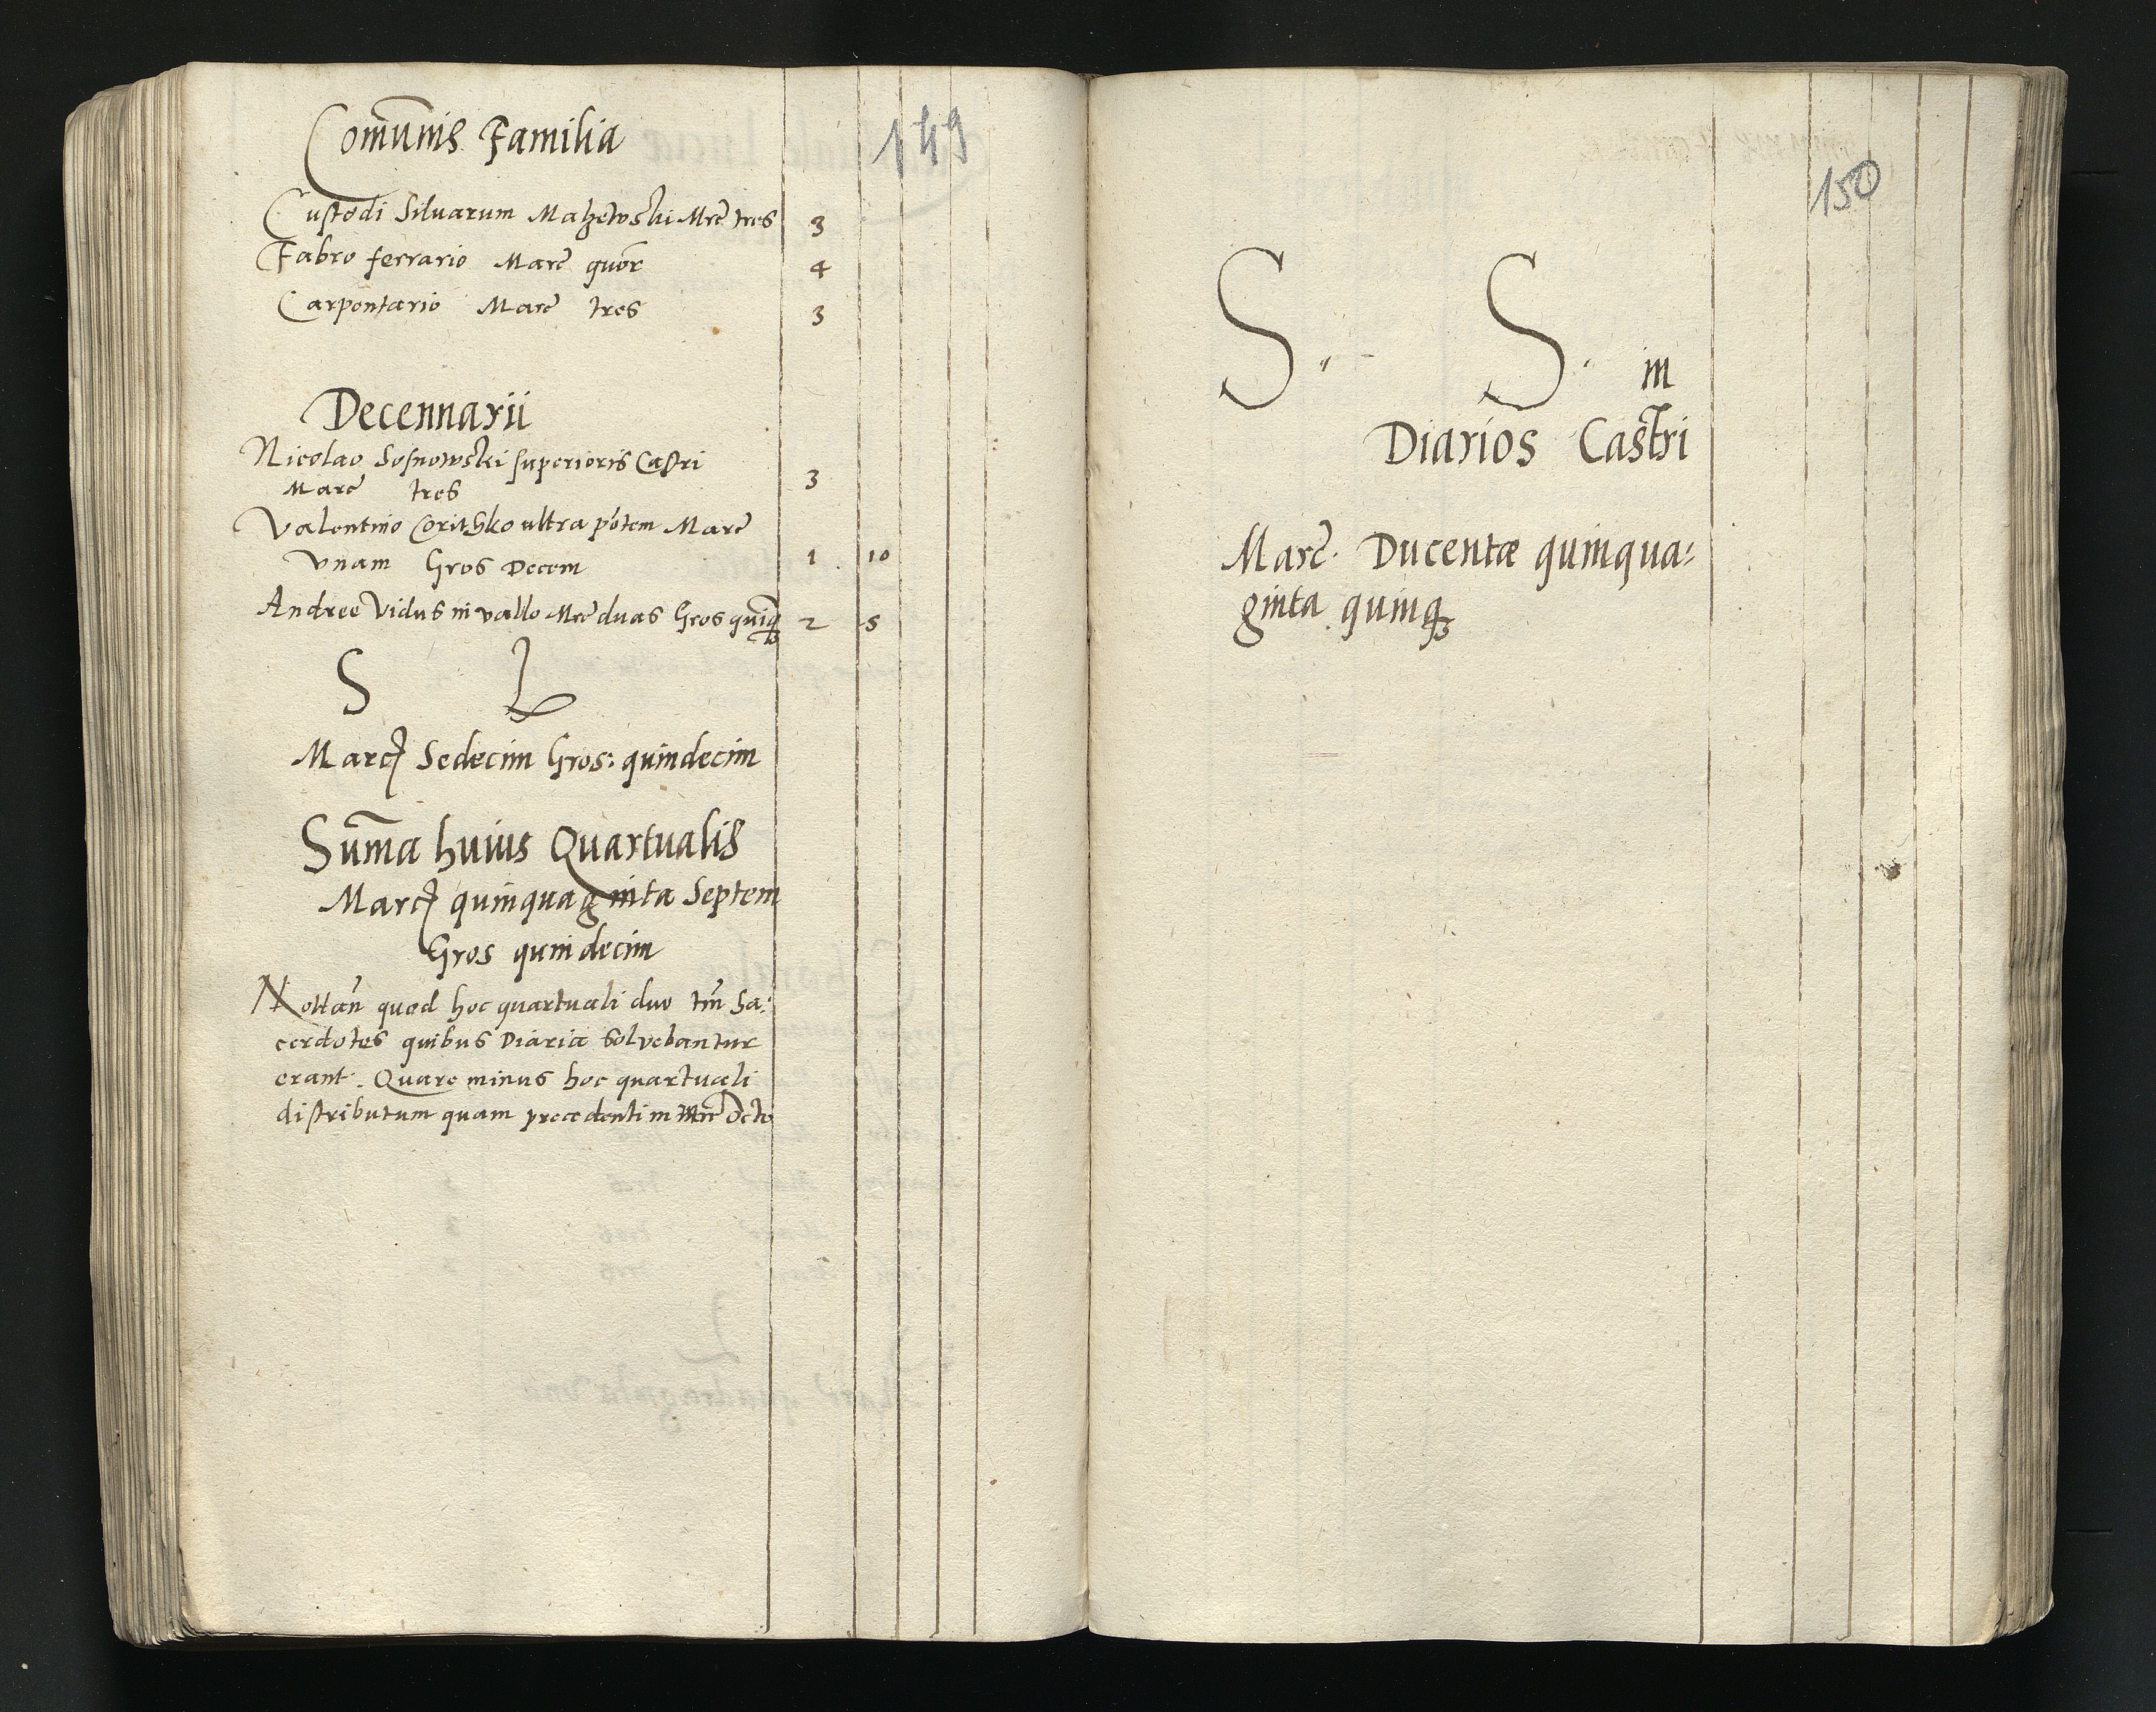 149
Com̃unis Familia
Custodi Siluarum Mazewski Mrc tres 3
Fabro ferrario Marc quõr 4
Carpentario Marc tres 3
Decennarii
Nicolao Sosnowski superioris Castri
Marc tres 3
Valentino Coritsko ultra põtem Marc
vnam Gros Decem 1 10
Andree Vidus in vallo Mrc duas Gros quinq3 2 5
S L
Marc Sedecim Gros: quindecim
Sum̃a huius Quartualis
Marc quinquaginta Septem
Gros quindecim
Nottañ quod hoc quartuali duo tm̃ Sa:
cerdotes quibus Diaria Solvebantur
erant. Quare minus hoc quartuali
distributum quam precedenti in Mrc Octo
150
S. S. in
Diarios Castri
Marc. Ducentæ quinqua:
ginta quinq3